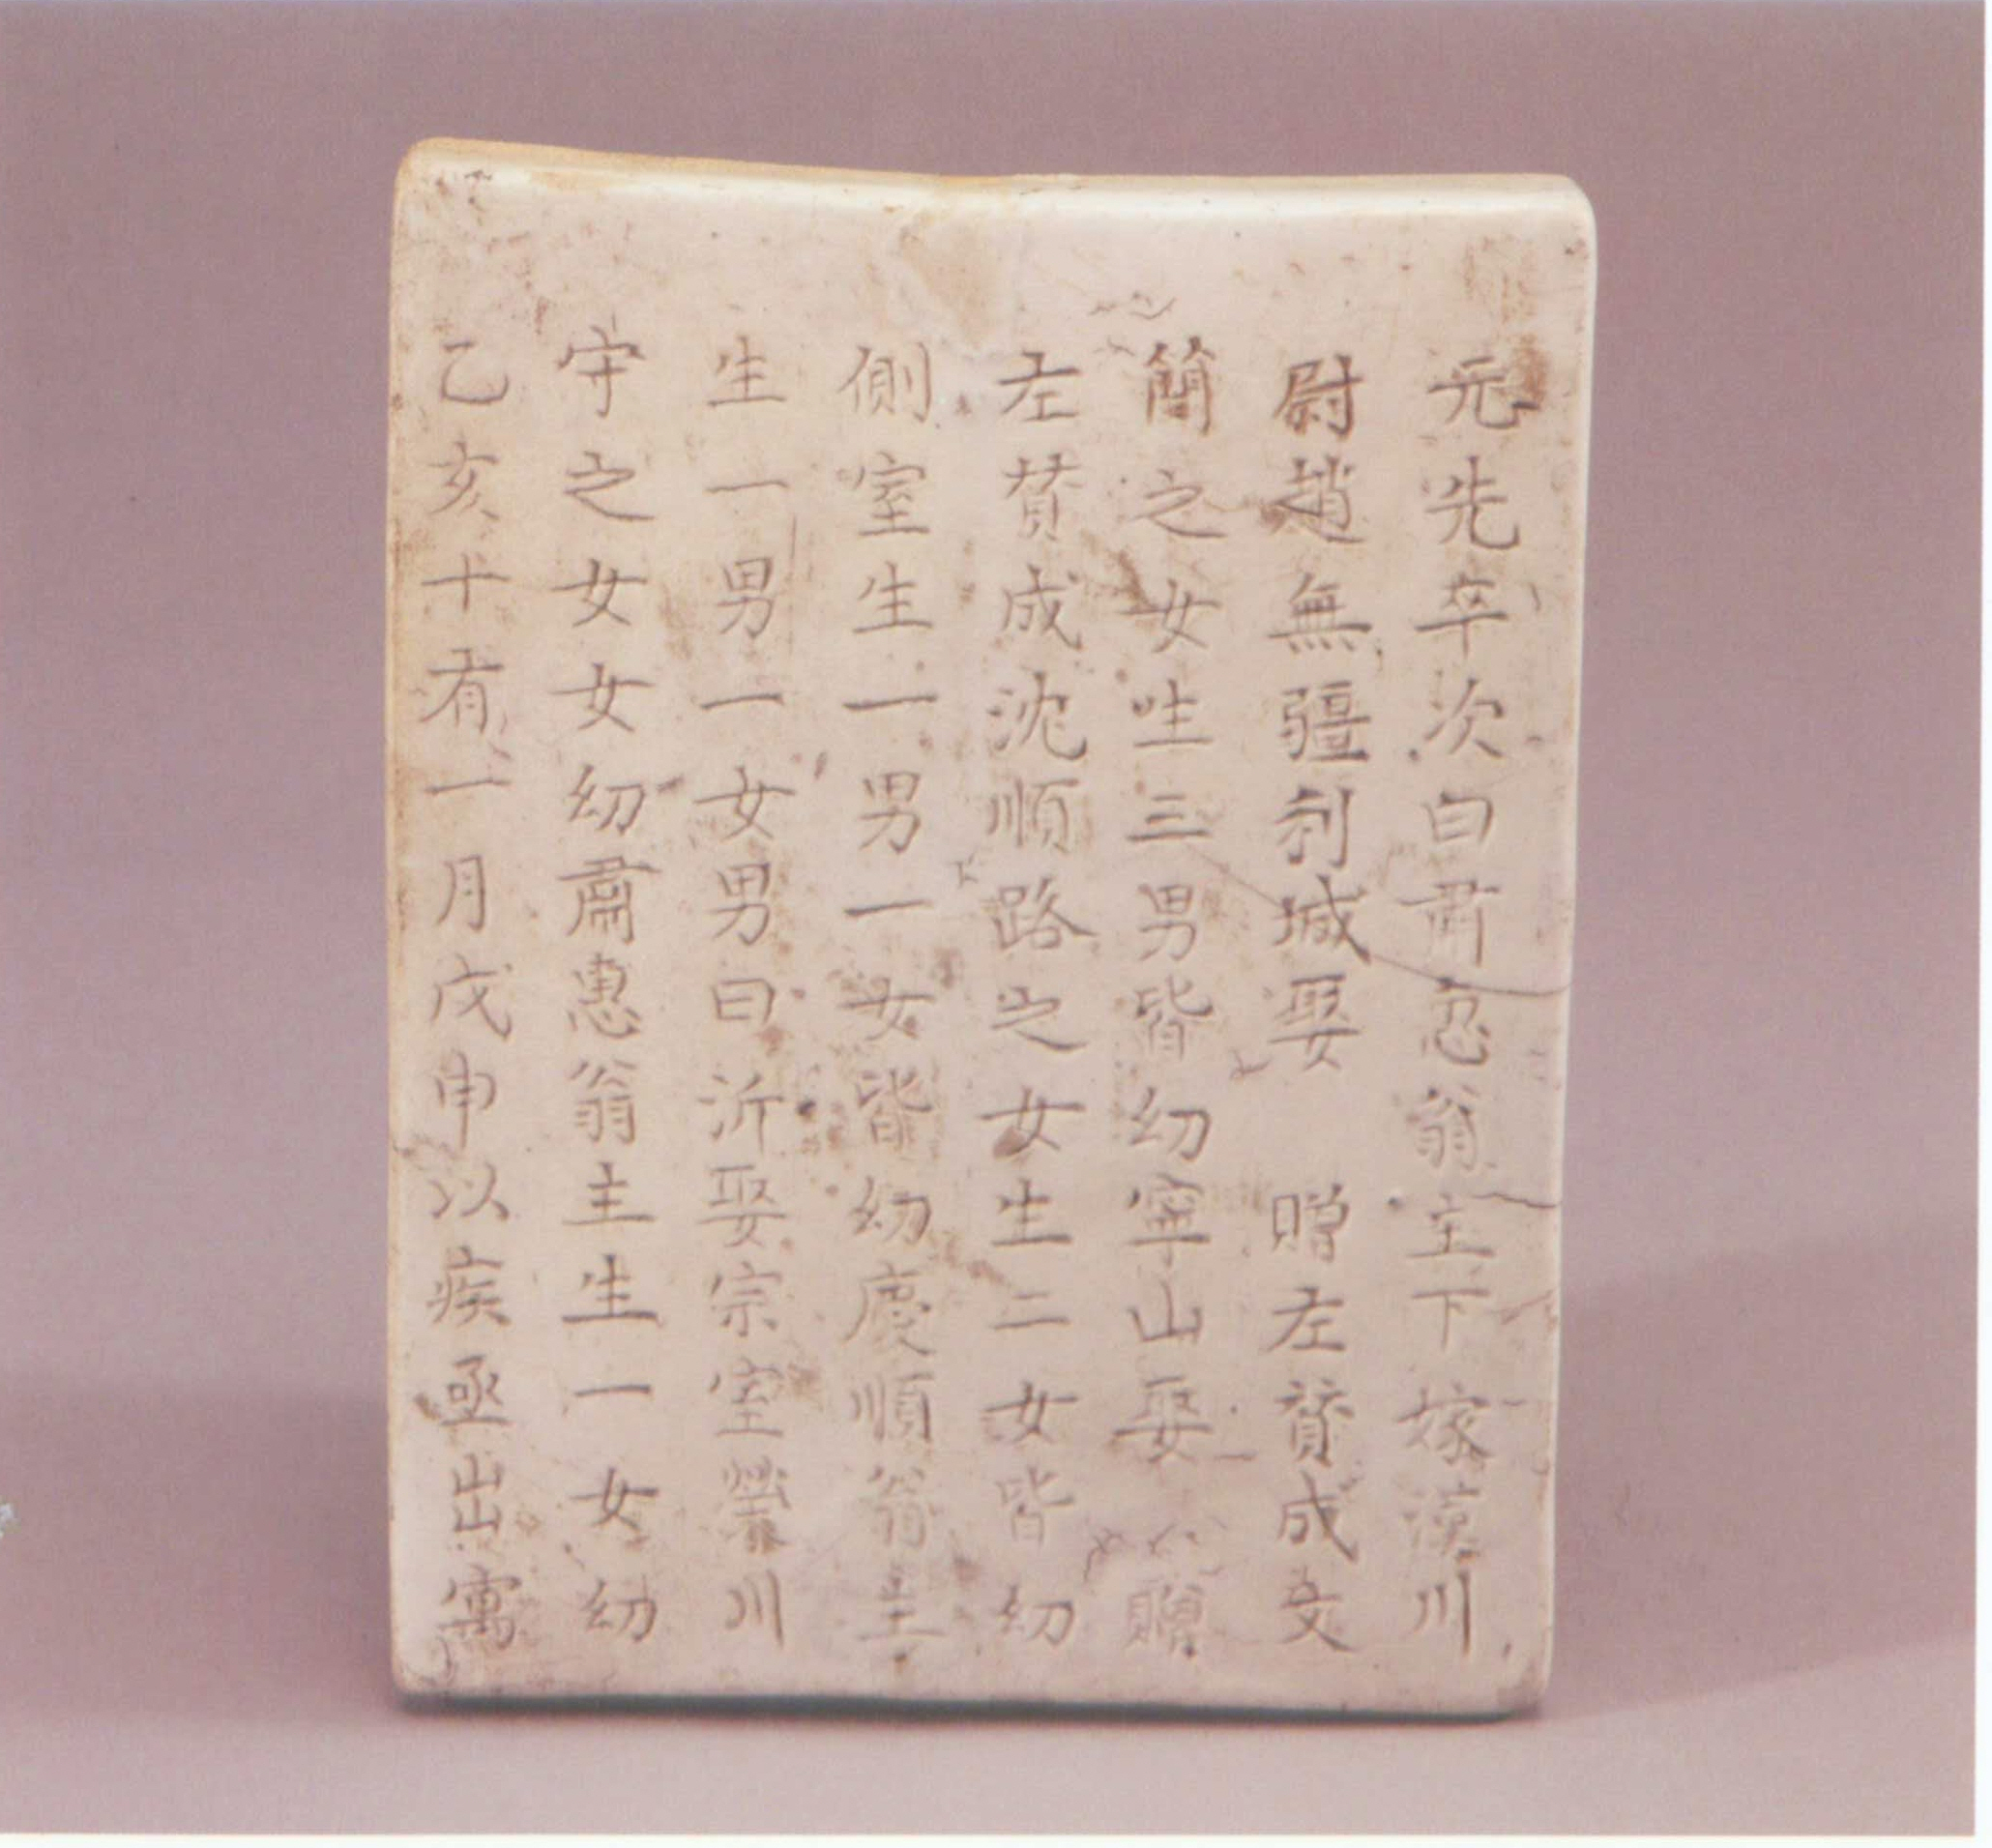 元先卒次曰肅惠翁主下嫁漢川
尉趙無疆利城娶　贈左賛成文
簡之女生三男皆幼寧山娶　贈
左賛成沈順路之女生二女皆幼
側室生一男一女皆幼慶順翁主
生一男一女男曰沂娶宗室榮川
守之女女幼肅惠翁主生一女幼
乙亥十有一月戊申以疾亟出寓